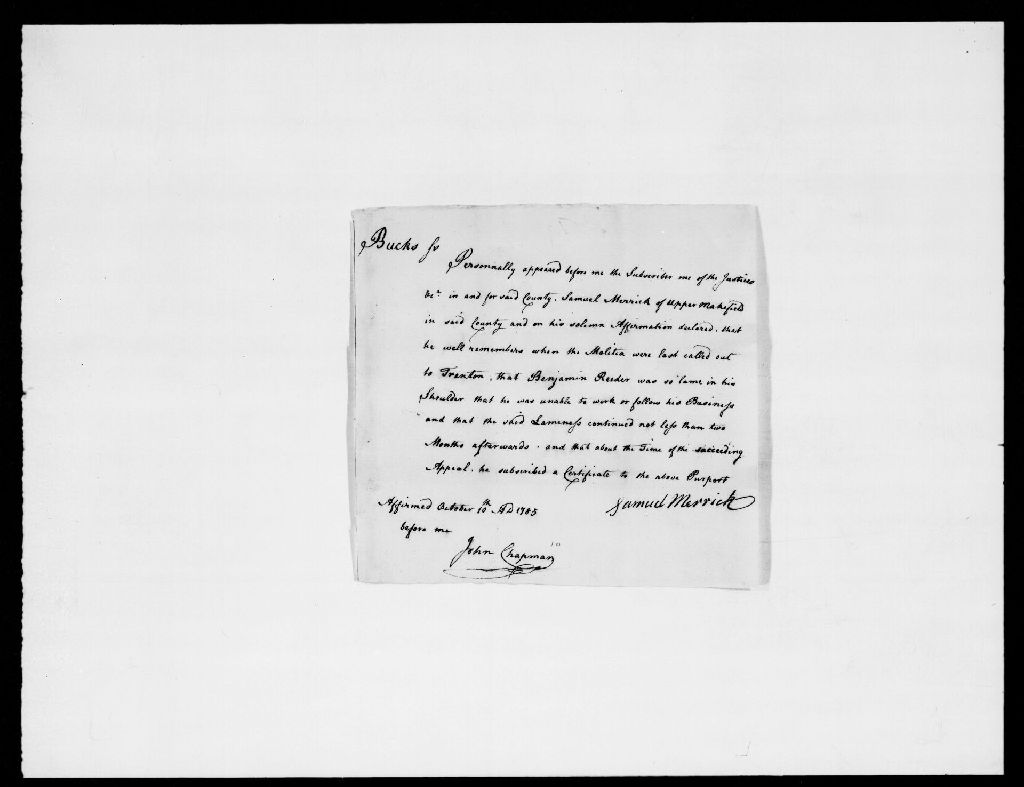 Bucks ss
Personnally appeared before me the Subscriber one of the Justices
&c. in and for said County, Samuel Merrick of Upper Makefield
in said County and on his solemn Affirmation declared, that
he well remembers when the Malitia were last called out
to Trenton, that Benjamin Reeder was so lame in his
Shoulder that he was unable to work or follow his Business
and that the said Lameness continued not less than two
Months afterwards. and that about the Time of the succeeding
Appeal, he subscribed a Certificate to the above Purport
Samuel Merrick
Affirmed October 10th AD 1785
before me
John Chapman